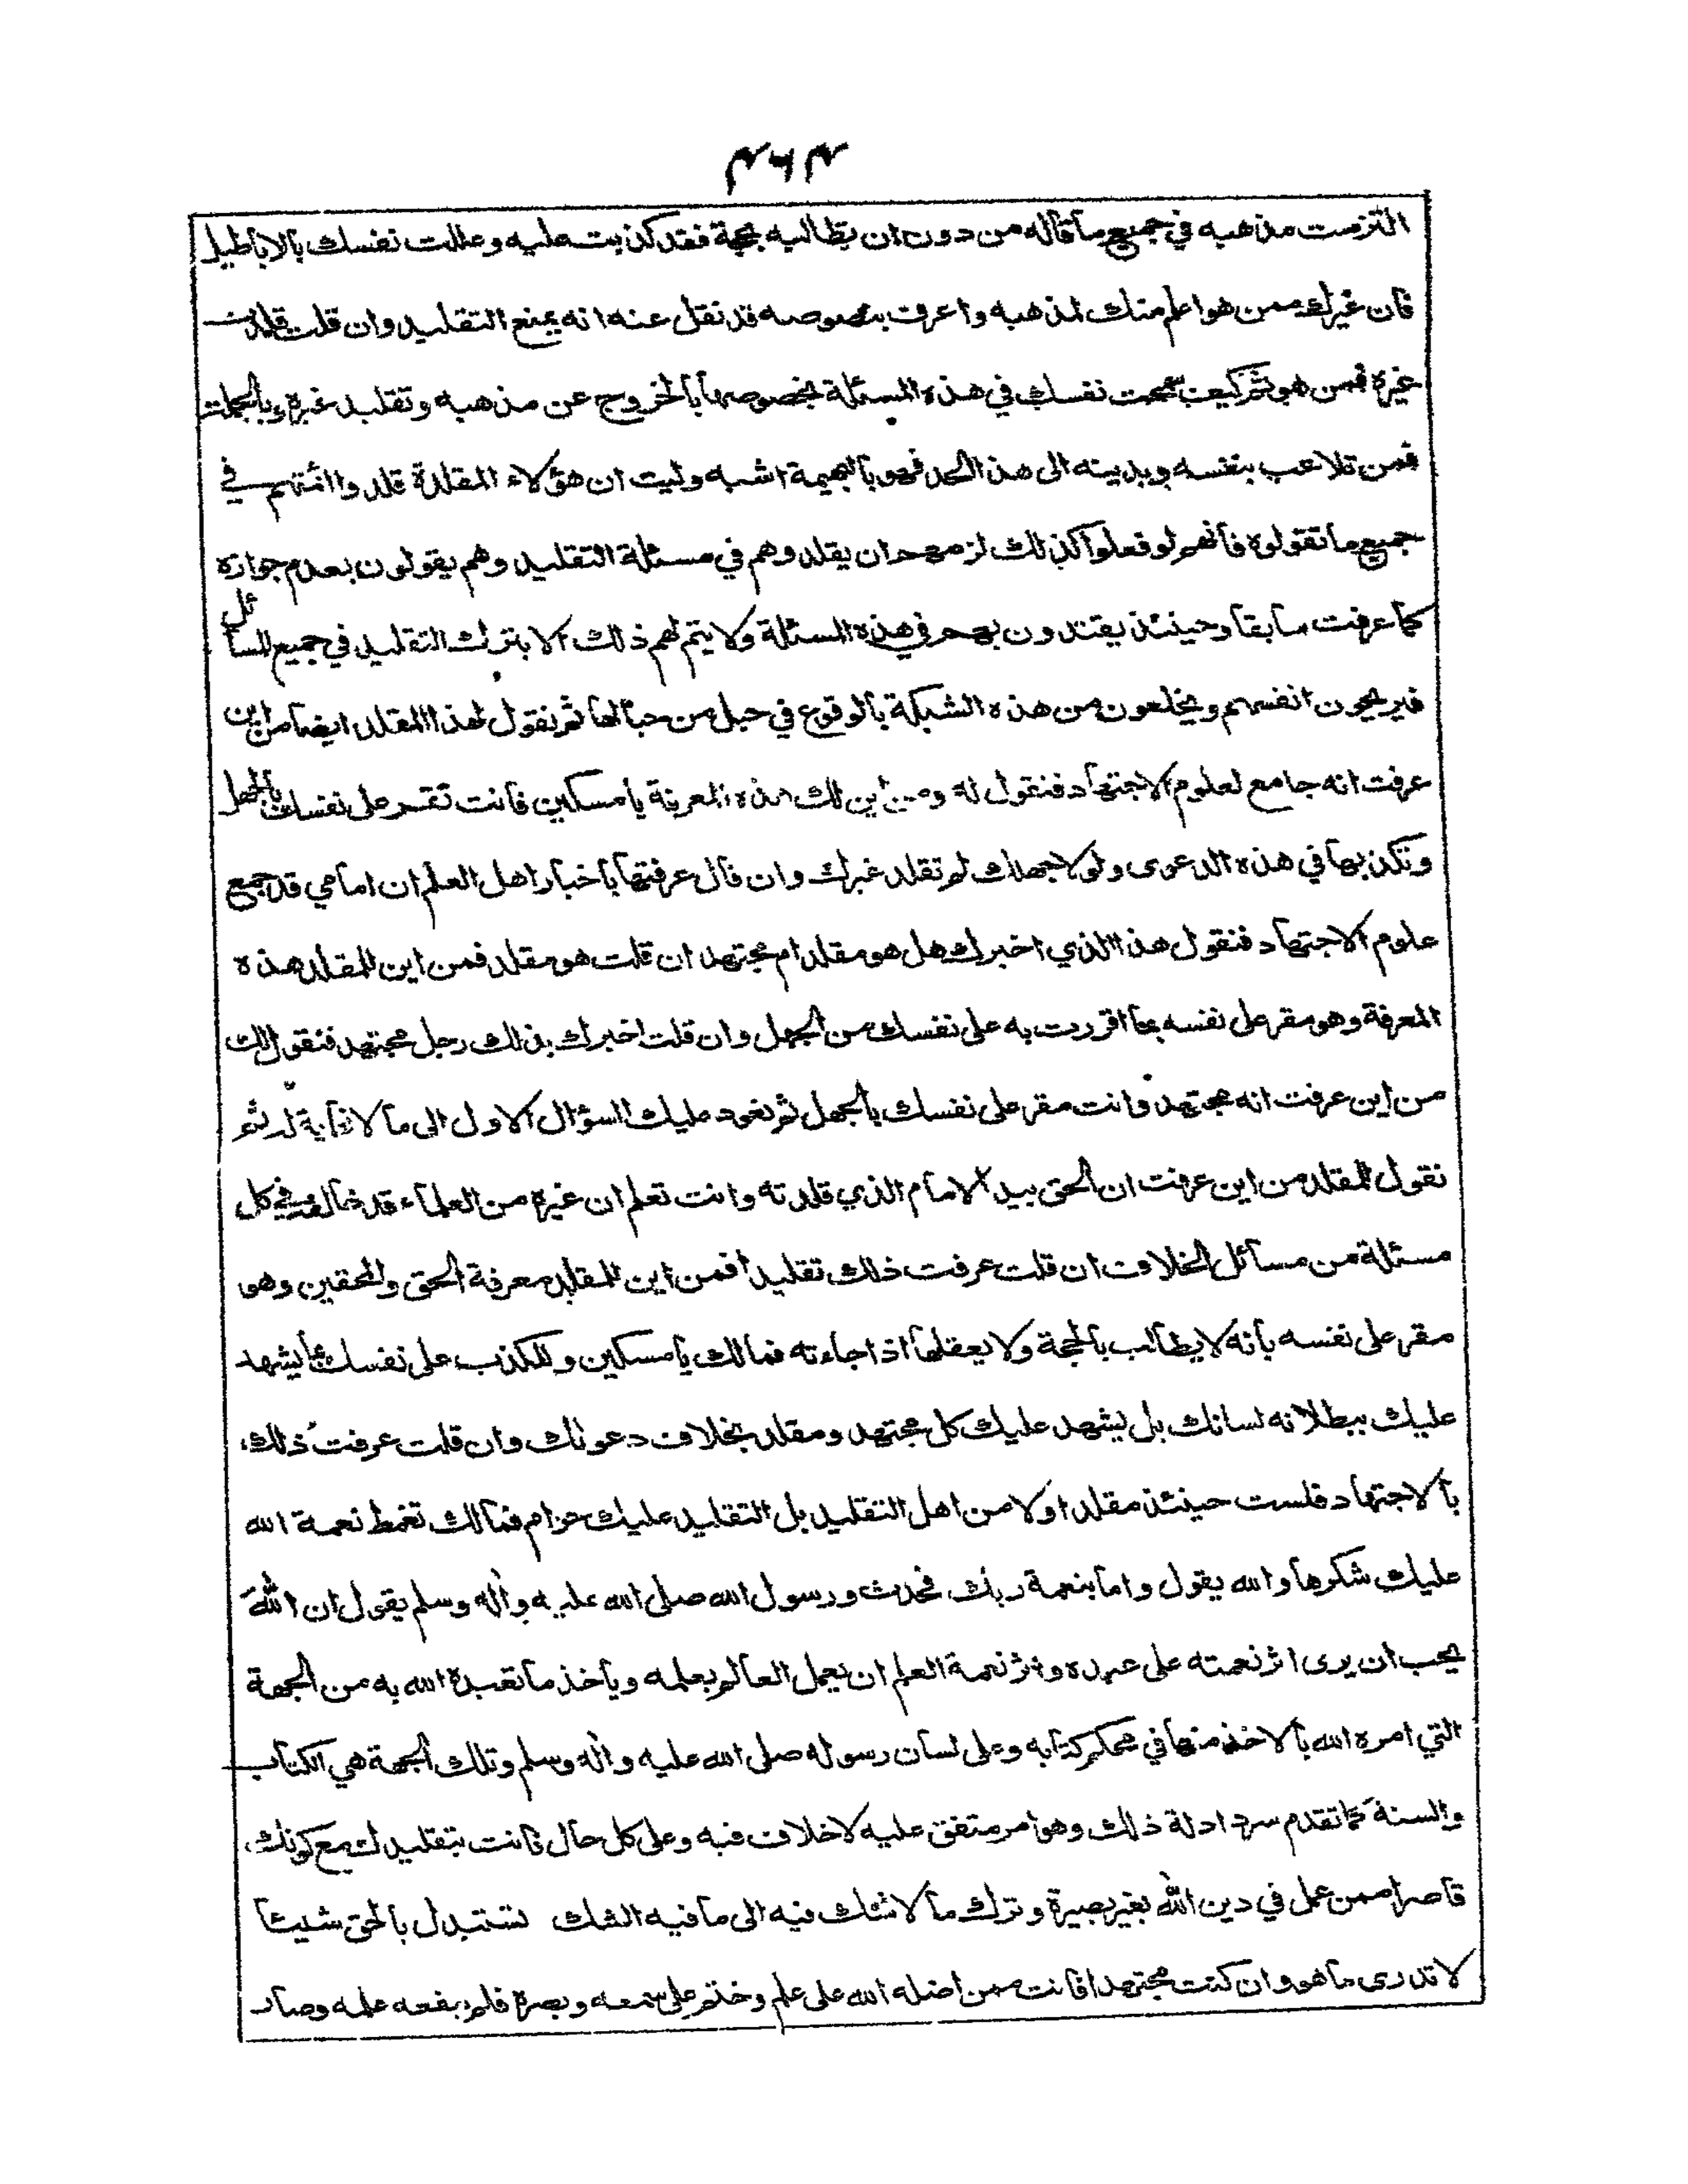 ٣٦٣
التزمت مذهبه في جميع ما قاله من دون ان يطالبه بحجة فقد كذبت عليه وعللت نفسك بالاباطيل
فان غيرك ممن هو اعلم منك لمذهبه واعرف بنصوصه قد نقل عنه انه يمنع التقليد وان قلت قلدت
غيره فمن هو ثم كيف سمحت نفسك في هذه المسئلة بخصوصها بالخروج عن مذهبه وتقليد غيره وبالجملة
فمن تلاعب بنفسه وبدينه الى هذا الحد فهو بالبهيمة اشبه وليت ان هؤلاء المقلدة قلدوا ائمتهم في
جميع ما تقولوه فانهم لو فعلوا كذلك لزمهم ان يقلدوهم في مسئلة التقليد وهم يقولون بعدم جوازه
كما عرفت سابقا وحينئذ يقتدون بهم في هذه المسئلة ولا يتم لهم ذلك الا بترك التقليد في جميع المسائل
فيريحون انفسهم ويخلعون من هذه الشبكة بالوقوع في حبل من حبالها ثم نقول لهذا المقلد ايضا من اين
عرفت انه جامع لعلوم الاجتهاد فنقول له ومن اين لك هذه المعرفة يا مسكين فانت تقر على نفسك بالجهل
وتكذبها في هذه الدعوى ولولا جهلك لم تقلد غيرك وان قال عرفتها باخبار اهل العلم ان امامي قد جمع
علوم الاجتهاد فنقول هذا الذي اخبرك هل هو مقلد ام مجتهد ان قلت هو مقلد فمن اين للمقلد هذه
المعرفة وهو مقر على نفسه بما اقررت به على نفسك من الجهل وان قلت اخبرك بذلك رجل مجتهد فنقول لك
من اين عرفت انه مجتهد وانت مقر على نفسك بالجهل ثم نعود عليك السؤال الاول الى ما لا نهاية له ثم
نقول للمقلد من اين عرفت ان الحق بيد الامام الذي قلدته وانت تعلم ان غيره من العلماء قد خالفه في كل
مسئلة من مسائل الخلاف ان قلت عرفت ذلك تقليدا فمن اين للمقلد معرفة الحق والمحقين وهو
مقر على نفسه بانه لا يطالب بالحجة ولا يعقلها اذا جاءته فمالك يا مسكين وللكذب على نفسك بما يشهد
عليك ببطلانه لسانك بل يشهد عليك كل مجتهد ومقلد بخلاف دعوتك وان قلت عرفت ذلك
بالاجتهاد فلست حينئذ مقلدا ولا من اهل التقليد بل التقليد عليك حرام فمالك تغمط نعمة الله
عليك شكرها والله يقول واما بنعمة ربك فحدث ورسول الله صلى الله عليه وأله وسلم يقول ان الله
يحب ان يرى اثر نعمته على عبده واثر نعمة العلم ان يعمل العالم بعلمه وياخذ ما تعبده الله به من الجهة
التي امره الله بالاخذ منها في محكم كتابه وعلى لسان رسوله صلى الله عليه وأله وسلم وتلك الجهة هي الكتاب
والسنة كما تقدم سرد ادلة ذلك وهو امر متفق عليه لا خلاف فيه وعلى كل حال فانت بتقليدك مع كونك
قاصرا ممن عمل في دين الله بغير بصيرة وترك ما لا شك فيه الى ما فيه الشك تستبدل بالحق شيئا
لا تدرى ما هو وان كنت مجتهدا فانت ممن اضله الله على علم وختم على سمعه وبصره فلم ينفعه علمه وصار